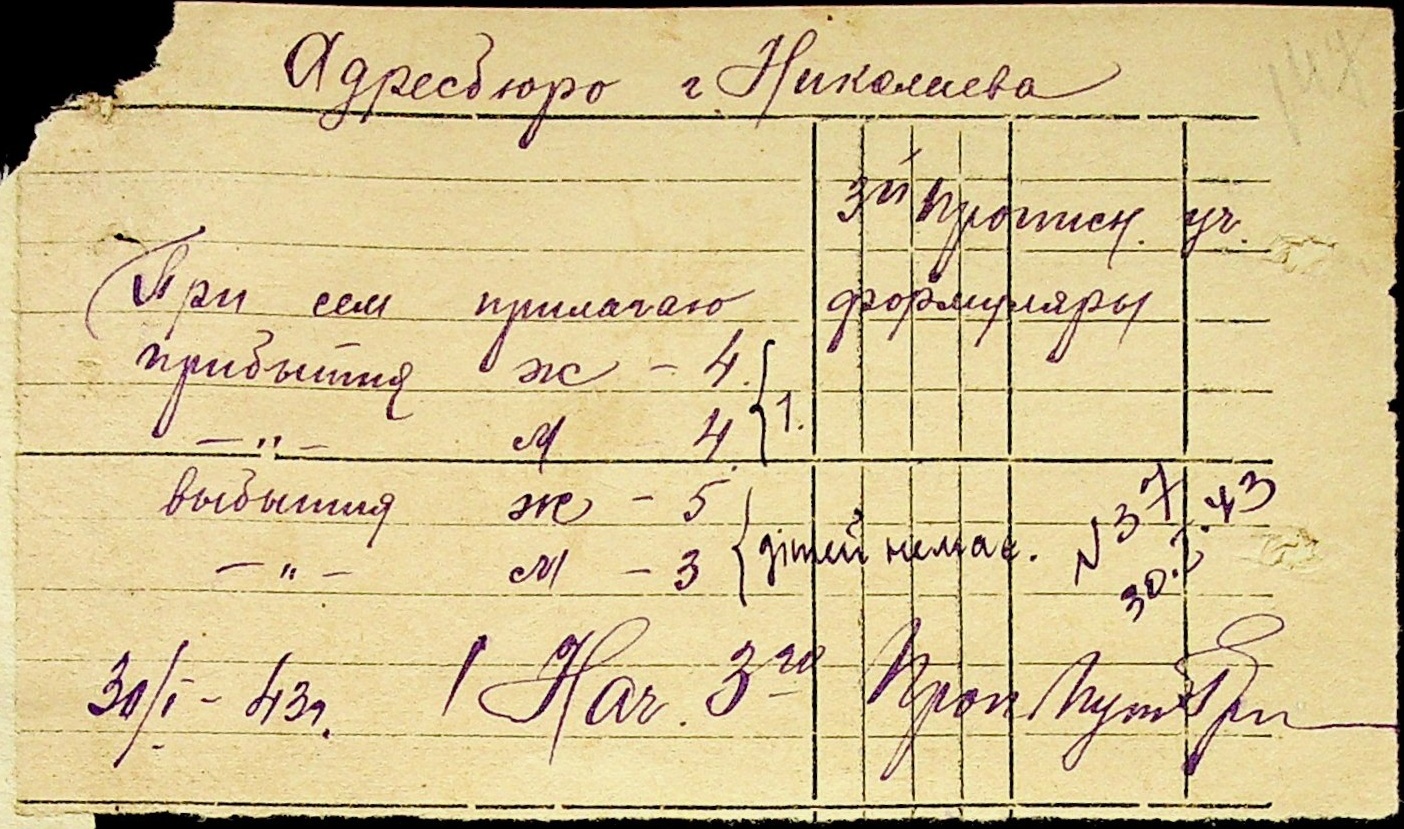 147
Адресбюро г Николаева
3й Прописн. уч.
При сем прилагаю формуляры
прибытия ж - 4.
—"— м - 4. } 1.
выбытия ж - 5
—"— м - 3 { дітей немає. N 37
30.I.43
30/I - 43г. Нач. 3го Проп Пункт